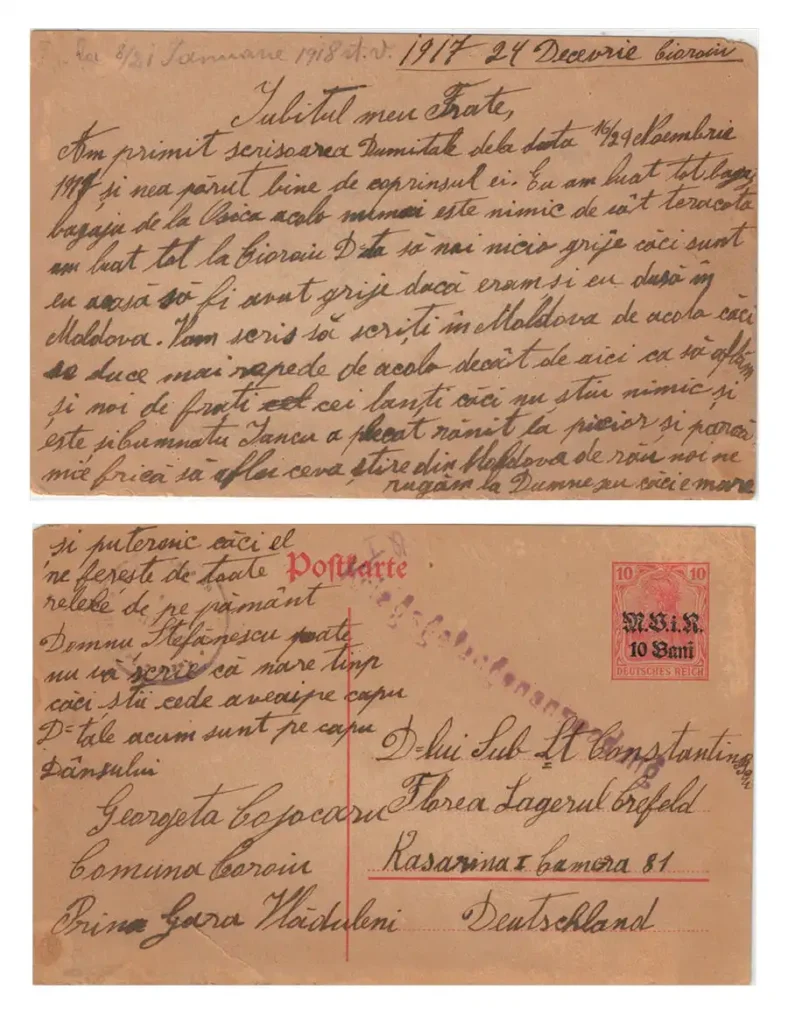 la 8/21 Ianuarie 1918 st. v. 1917 24 Decevrie Cioroiu
Iubitul meu Frate,
Am primit scrisoarea Dumitale dela data 16/29 Noembrie
1917 și nea părut bine de coprinsul ei. Eu am luat tot bagaj
bagaja de la Osica acolo numai este nimic de cât teracota
am luat tot la Cioroiu D=ta să nai nicio grije căci sunt
eu acasă să fi avut grije dacă eram si eu dusă în
Moldova. Vam scris să scriți în Moldova de acolo căci
se duce mai repede de acolo decât de aici ca să aflăm
și noi de frați cei lanți căci nu stiu nimic și
este și bumnatu Iancu a plecat rănit la picior și parcă
mie frică să aflu ceva știre din Moldova de rău noi ne
rugăm la Dumnezeu căci e mare
și puternic căci el
ne fereste de toate
relele de pe pământ
Domnu Ștefănescu poate
nu vă scrie că nare timp
căci stii cede aveai pe capu
D=tale acum sunt pe capu
Dânsului
Georgeta Cojocaru
Comuna Coroiu
Prina Gara Vlăduleni
Postkarte
Kriegsgefangenensendung
10 10
M.V.i.R.
10 Bani
DEUTSCHES REICH
D=lui Sub Lt Constantin
Florea Lagerul Crefeld
Kasarina I Camera 81
Deutschland